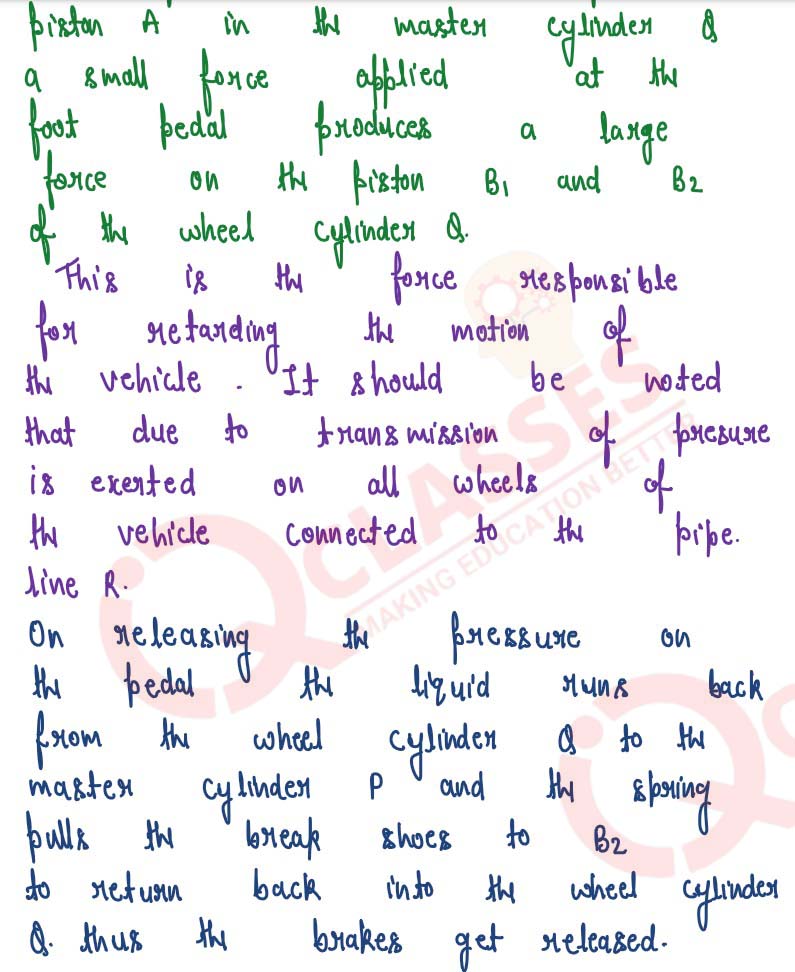 piston A in the master cylinder Q
a small force applied at the
foot pedal produces a large
force on the piston B1 and B2
of the wheel cylinder Q.
This is the force responsible
for retarding the motion of
the vehicle. It should be noted
that due to transmission of presure
is exerted on all wheels of
the vehicle connected to the pipe.
line R.
On releasing the pressure on
the pedal the liquid runs back
from the wheel cylinder Q to the
master cylinder P and the spring
pulls the break shoes to B2
to return back into the wheel cylinder
Q. thus the brakes get released.
IQ CLASSES
MAKING EDUCATION BETTER